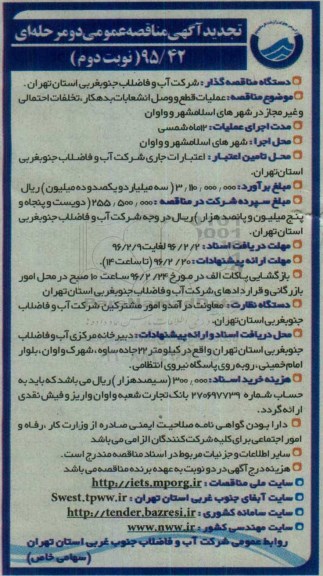 تجدید آگهی مناقصه عمومی دو مرحله‌ای
۹۵/۴۲ (نوبت دوم)
دستگاه مناقصه گذار : شرکت آب و فاضلاب جنوبغربی استان تهران .
موضوع مناقصه : عملیات قطع و وصل انشعابات بدهکار ، تخلفات احتمالی
و غیر مجاز در شهر های اسلامشهر و واوان
مدت اجرای عملیات : ۱۲ماه شمسی
محل اجرا : شهر های اسلامشهر و واوان
محل تامین اعتبار : اعتبارات جاری شرکت آب و فاضلاب جنوبغربی
استان تهران.
مبلغ برآورد : ۳/۱۱۰/۰۰۰/۰۰۰ ( سه میلیارد و یکصد و ده میلیون ) ریال
مبلغ سپرده شرکت در مناقصه : ۲۵۵/۵۰۰/۰۰۰ (دویست و پنجاه و
پنج میلیون و پانصد هزار ) ریال در وجه شرکت آب و فاضلاب جنوبغربی
استان تهران.
مهلت دریافت اسناد : ۹۶/۲/۲ لغایت ۹۶/۲/۹
مهلت ارائه پیشنهادات : ۹۶/۲/۲۰ (تا ساعت ۱۴).
بازگشایی پاکات الف در مورخ ۹۶/۲/۲۴ ساعت ۱۰ صبح در محل امور
بازرگانی و قراردادهای شرکت آب و فاضلاب جنوبغربی استان تهران
دستگاه نظارت : معاونت درآمد و امور مشترکین شرکت آب و فاضلاب
جنوبغربی استان تهران.
محل دریافت اسناد و ارائه پیشنهادات : دبیرخانه مرکزی آب و فاضلاب
جنوبغربی استان تهران واقع در کیلومتر ۲۲ جاده ساوه ، شهرک واوان ، بلوار
امام خمینی ، روبه روی پاسگاه نیروی انتظامی.
هزینه خرید اسناد : ۳۰۰/۰۰۰ (سیصد هزار ) ریال می باشد که باید به
حساب شماره ۲۷۰۶۹۷۷۳۹ بانک تجارت شعبه واوان واریز و فیش نقدی
ارائه گردد.
دارا بودن گواهی نامه صلاحیت ایمنی صادره از وزارت کار ، رفاه و
امور اجتماعی برای کلیه شرکت کنندگان الزامی می باشد
سایر اطلاعات و جزئیات مربوط در اسناد مناقصه مندرج است .
هزینه درج آگهی در دو نوبت به عهده برنده مناقصه می باشد
سایت ملی مناقصات : http://iets.mporg.ir
سایت آبفای جنوب غربی استان تهران : Swest.tpww.ir
سایت سامانه کشوری : http://tender.bazresi.ir
سایت مهندسی کشور : www.nww.ir
روابط عمومی شرکت آب و فاضلاب جنوب غربی استان تهران
(سهامی خاص)